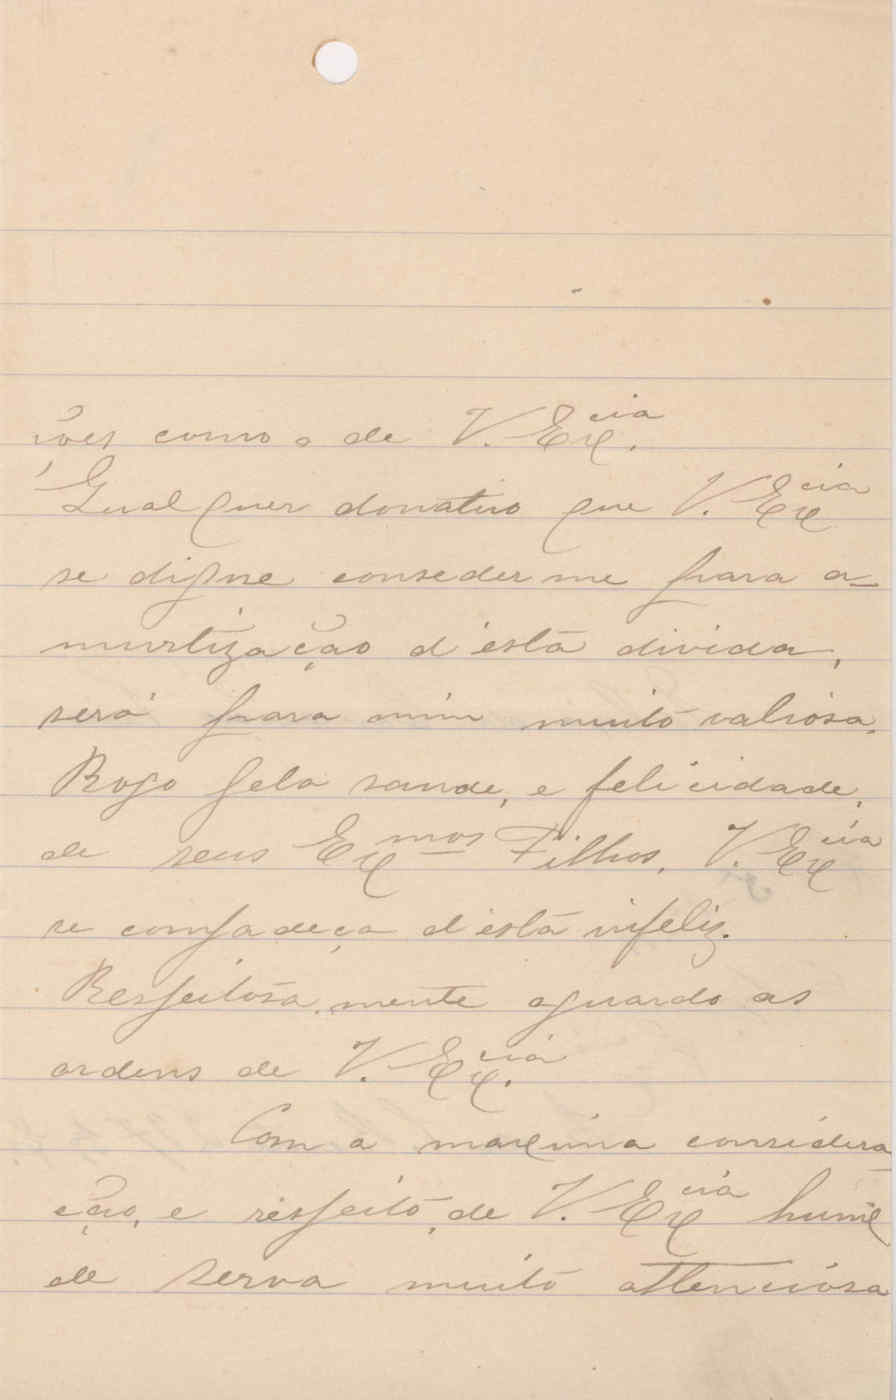 ções como o de V. Ex.cia
Qual quer donativo que V. Excia
se digne conseder me para a-
murtização d'está divida,
será para mim muitó valiósa.
Rogo pela saude, e felicidade,
de seus Exmos Filhos, V. Excia
se compadeça d'está infeliz.
Respeitósa mente aguardo as
ordens de V. Ex.cia
Com a maxima considera-
ção, e respeitó, de V. Excia humil
de serva muitó attenciósa